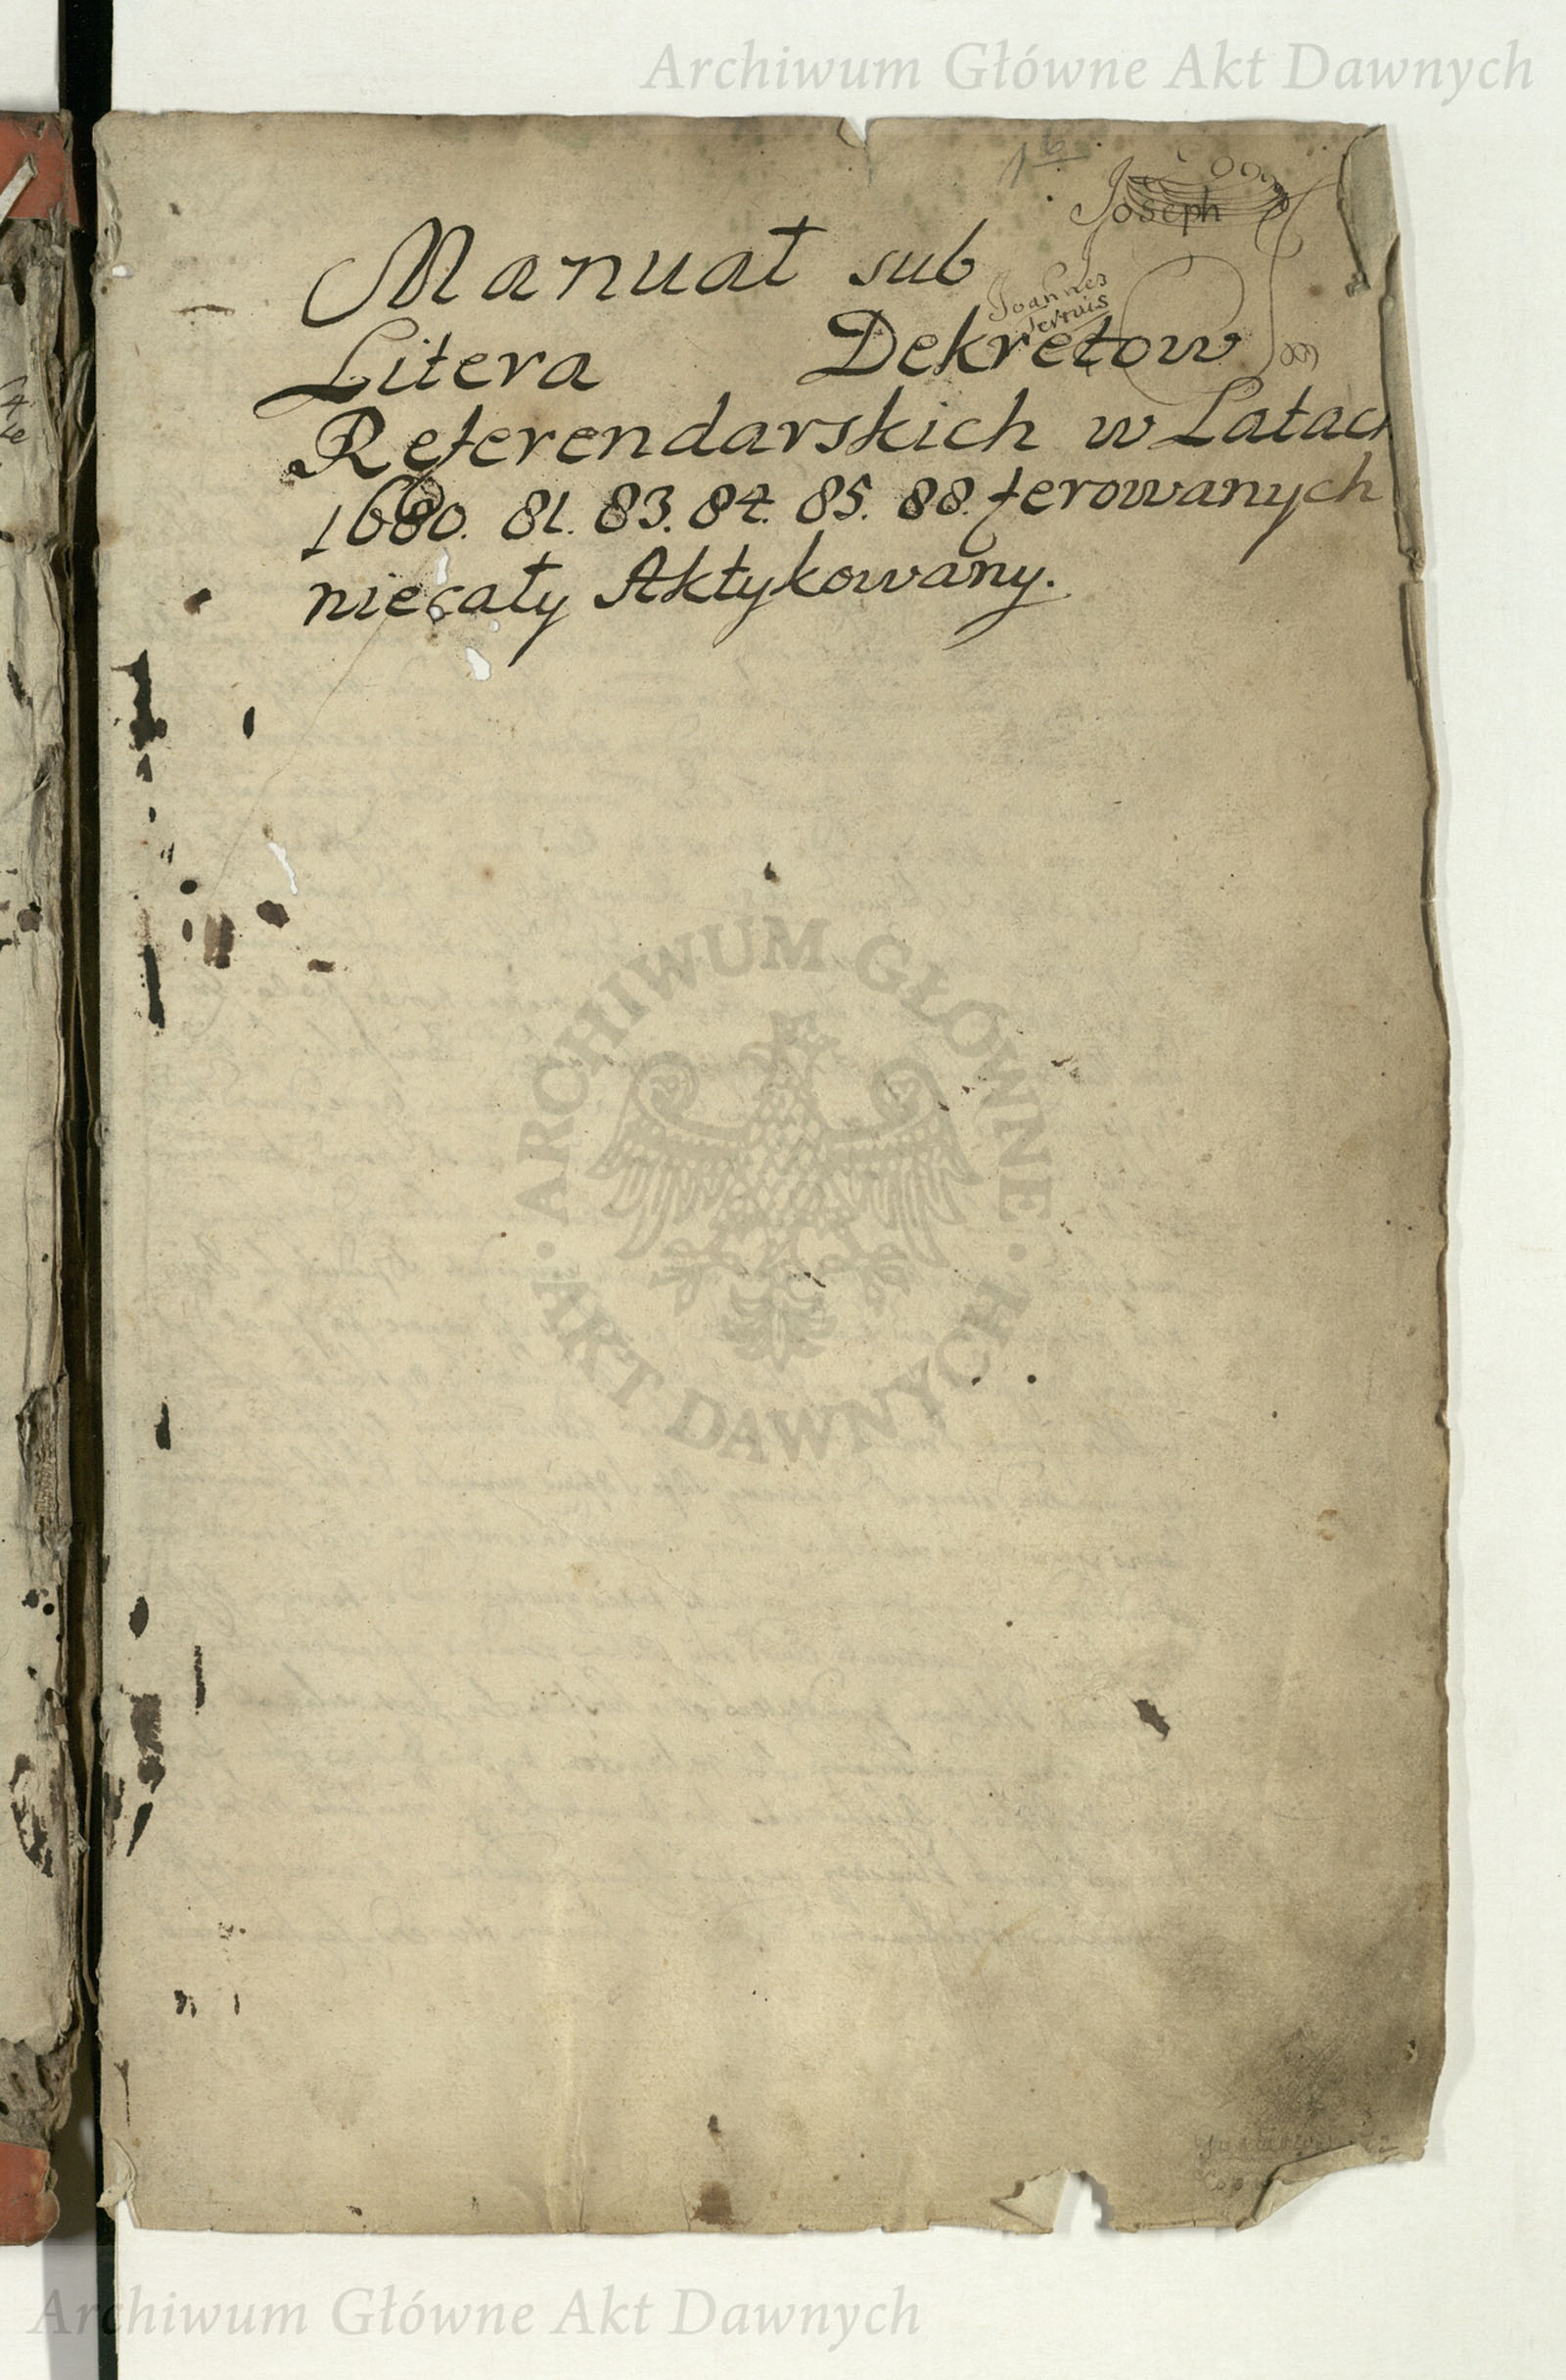 Archiwum Główne Akt Dawnych
Joseph
Manuał sub
Joannes
Litera Dekretow
Referendarskich w Latach
1680. 81. 83. 84. 85. 88. ferowanych
niecały Aktykowany.
ARCHIWUM GŁÓWNE
AKT DAWNYCH
Archiwum Główne Akt Dawnych